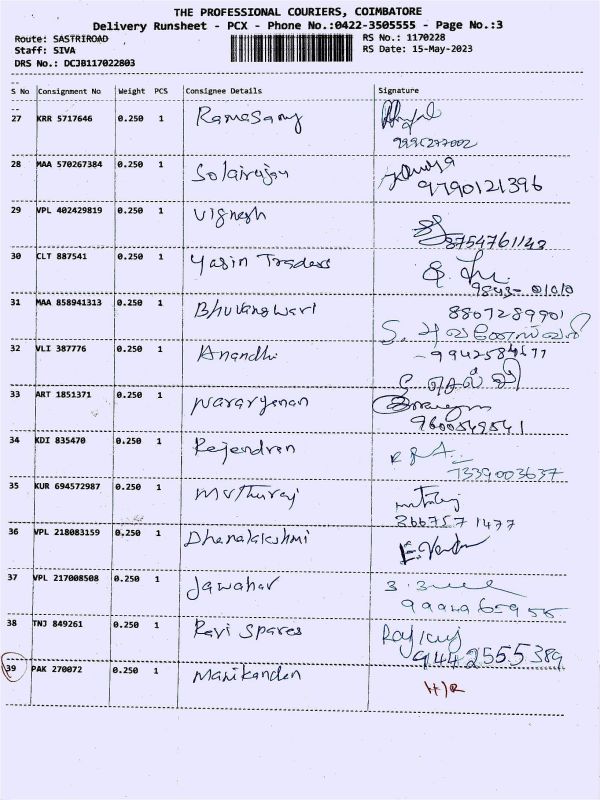 THE PROFESSIONAL COURIERS, COIMBATORE
Delivery Runsheet - PCX - Phone No.:0422-3505555 - Page No.:3
Route: SASTRIROAD
RS No.: 1170228
Staff: SIVA
RS Date: 15-May-2023
DRS No.: DCJB117022803
S No Consignment No Weight PCS Consignee Details Signature
27 KRR 5717646 0.250 1 Ramasamy
28 MAA 570267384 0.250 1 Solairajan
9790121396
29 VPL 402429819 0.250 1 Vignesh
8754761143
30 CLT 887541 0.250 1 Yasin Traders
31 MAA 858941313 0.250 1 Bhuvaneswari
8807289901
32 VLI 387776 0.250 1 Anandhi
33 ART 1851371 0.250 1 Nararyanan
9600549541
34 KDI 835470 0.250 1 Rajendren
7339003637
35 KUR 694572987 0.250 1 Muthuraj
36 VPL 218083159 0.250 1 Dhanalakshmi
37 VPL 217008508 0.250 1 Jawahar
38 TNJ 849261 0.250 1 Ravi Spares
9442555389
39 PAK 270072 0.250 1 Manikanden
H/R